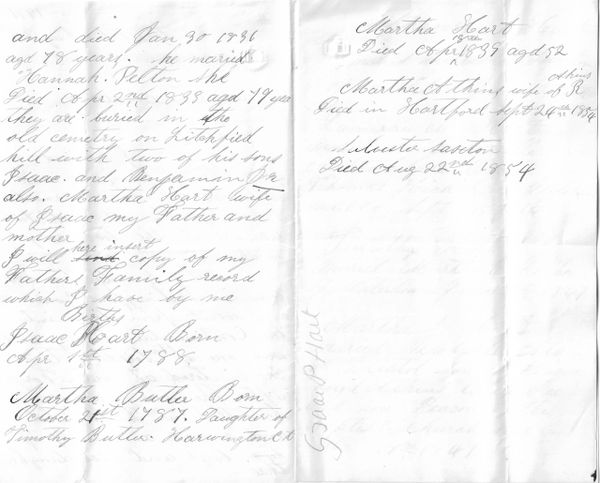 and died Jan 30 1836
agd 78 years. he maried
Hannah. Pelton she
Died Apr 2nd 1833 aged 79 year
they are buried in the
old cemetry on Litchfied
hill with two of his sons
Isaac. and Benjamin Jr
also. Martha Hart wife
of Isaac my Father and
mother
I will here insert copy of my
Fathers Family record
which I have by me
Births
Isaac Hart Born
Apr 1st 1788.
Martha Butler Born
October 21st 1787. Daughter of
Timothy Butler. Harwington Ct
Martha Hart
Died Apr 1839 agd 52
Martha Athins wife of R
Died in Hartford Sept 24th
Saxton
Died Aug 22nd 1854
Isaac P Hart